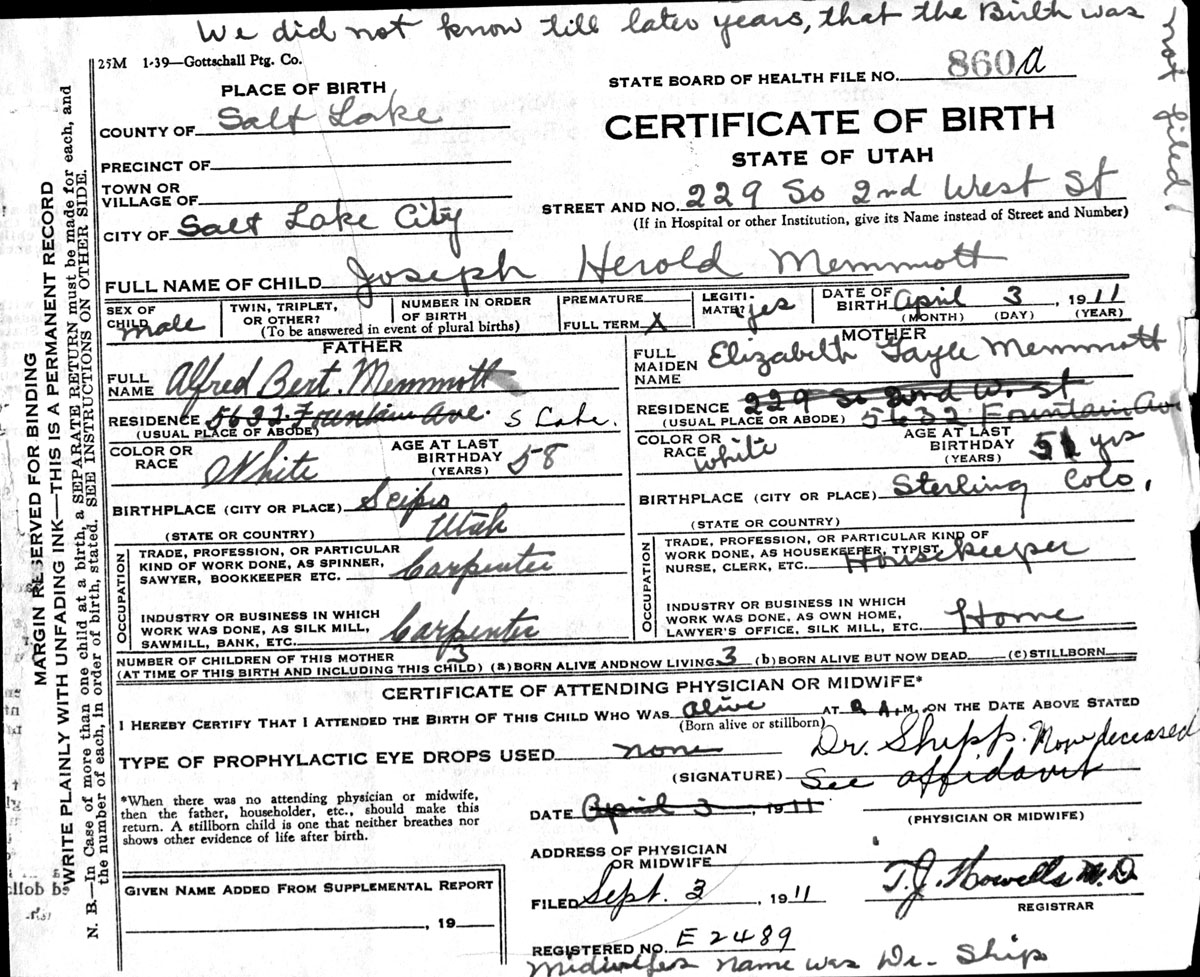 We did not know till later years, that the Birth was not filed!
25M 1-39—Gottschall Ptg. Co.
STATE BOARD OF HEALTH FILE NO. 860 a
PLACE OF BIRTH
COUNTY OF Salt Lake
CERTIFICATE OF BIRTH
PRECINCT OF
STATE OF UTAH
TOWN OR
VILLAGE OF
STREET AND NO. 229 So 2nd West St
(If in Hospital or other Institution, give its Name instead of Street and Number)
CITY OF Salt Lake City
FULL NAME OF CHILD Joseph Herold Memmott
SEX OF CHILD male
TWIN, TRIPLET, OR OTHER?
NUMBER IN ORDER OF BIRTH
(To be answered in event of plural births)
PREMATURE
FULL TERM X
LEGITIMATE? yes
DATE OF BIRTH April 3, 1911
(MONTH) (DAY) (YEAR)
FATHER
FULL NAME Alfred Bert. Memmott
RESIDENCE 5632 Fountain Ave. S Lake.
(USUAL PLACE OF ABODE)
COLOR OR RACE White
AGE AT LAST BIRTHDAY (YEARS) 58
BIRTHPLACE (CITY OR PLACE) Scipio
(STATE OR COUNTRY) Utah
OCCUPATION
TRADE, PROFESSION, OR PARTICULAR
KIND OF WORK DONE, AS SPINNER,
SAWYER, BOOKKEEPER ETC. Carpenter
INDUSTRY OR BUSINESS IN WHICH
WORK WAS DONE, AS SILK MILL,
SAWMILL, BANK, ETC. Carpenter
MOTHER
FULL MAIDEN NAME Elizabeth Gayle Memmott
229 So 2nd W. St
RESIDENCE
(USUAL PLACE OR ABODE) 5632 Fountain Ave
COLOR OR RACE white
AGE AT LAST BIRTHDAY (YEARS) 51 yrs
BIRTHPLACE (CITY OR PLACE) Sterling Colo.
(STATE OR COUNTRY)
OCCUPATION
TRADE, PROFESSION, OR PARTICULAR KIND OF
WORK DONE, AS HOUSEKEEPER, TYPIST,
NURSE, CLERK, ETC. Housekeeper
INDUSTRY OR BUSINESS IN WHICH
WORK WAS DONE, AS OWN HOME,
LAWYER'S OFFICE, SILK MILL, ETC. Home
NUMBER OF CHILDREN OF THIS MOTHER 3
(AT TIME OF THIS BIRTH AND INCLUDING THIS CHILD) (a) BORN ALIVE AND NOW LIVING 3 (b) BORN ALIVE BUT NOW DEAD (c) STILLBORN
CERTIFICATE OF ATTENDING PHYSICIAN OR MIDWIFE*
I HEREBY CERTIFY THAT I ATTENDED THE BIRTH OF THIS CHILD WHO WAS alive AT A.M. ON THE DATE ABOVE STATED
(Born alive or stillborn)
TYPE OF PROPHYLACTIC EYE DROPS USED none
Dr. Shipp. Now deceased
(SIGNATURE) See affidavit
*When there was no attending physician or midwife,
then the father, householder, etc., should make this
return. A stillborn child is one that neither breathes nor
shows other evidence of life after birth.
DATE April 3, 1911
(PHYSICIAN OR MIDWIFE)
ADDRESS OF PHYSICIAN
OR MIDWIFE
GIVEN NAME ADDED FROM SUPPLEMENTAL REPORT
, 19
FILED Sept. 3, 1911
T. J. Howells M.D
REGISTRAR
REGISTERED NO. E 2489
Midwifes name was Dr. Ship
MARGIN RESERVED FOR BINDING
WRITE PLAINLY WITH UNFADING INK—THIS IS A PERMANENT RECORD
N. B.—In Case of more than one child at a birth, a SEPARATE RETURN must be made for each, and
the number of each, in order of birth, stated. SEE INSTRUCTIONS ON OTHER SIDE.